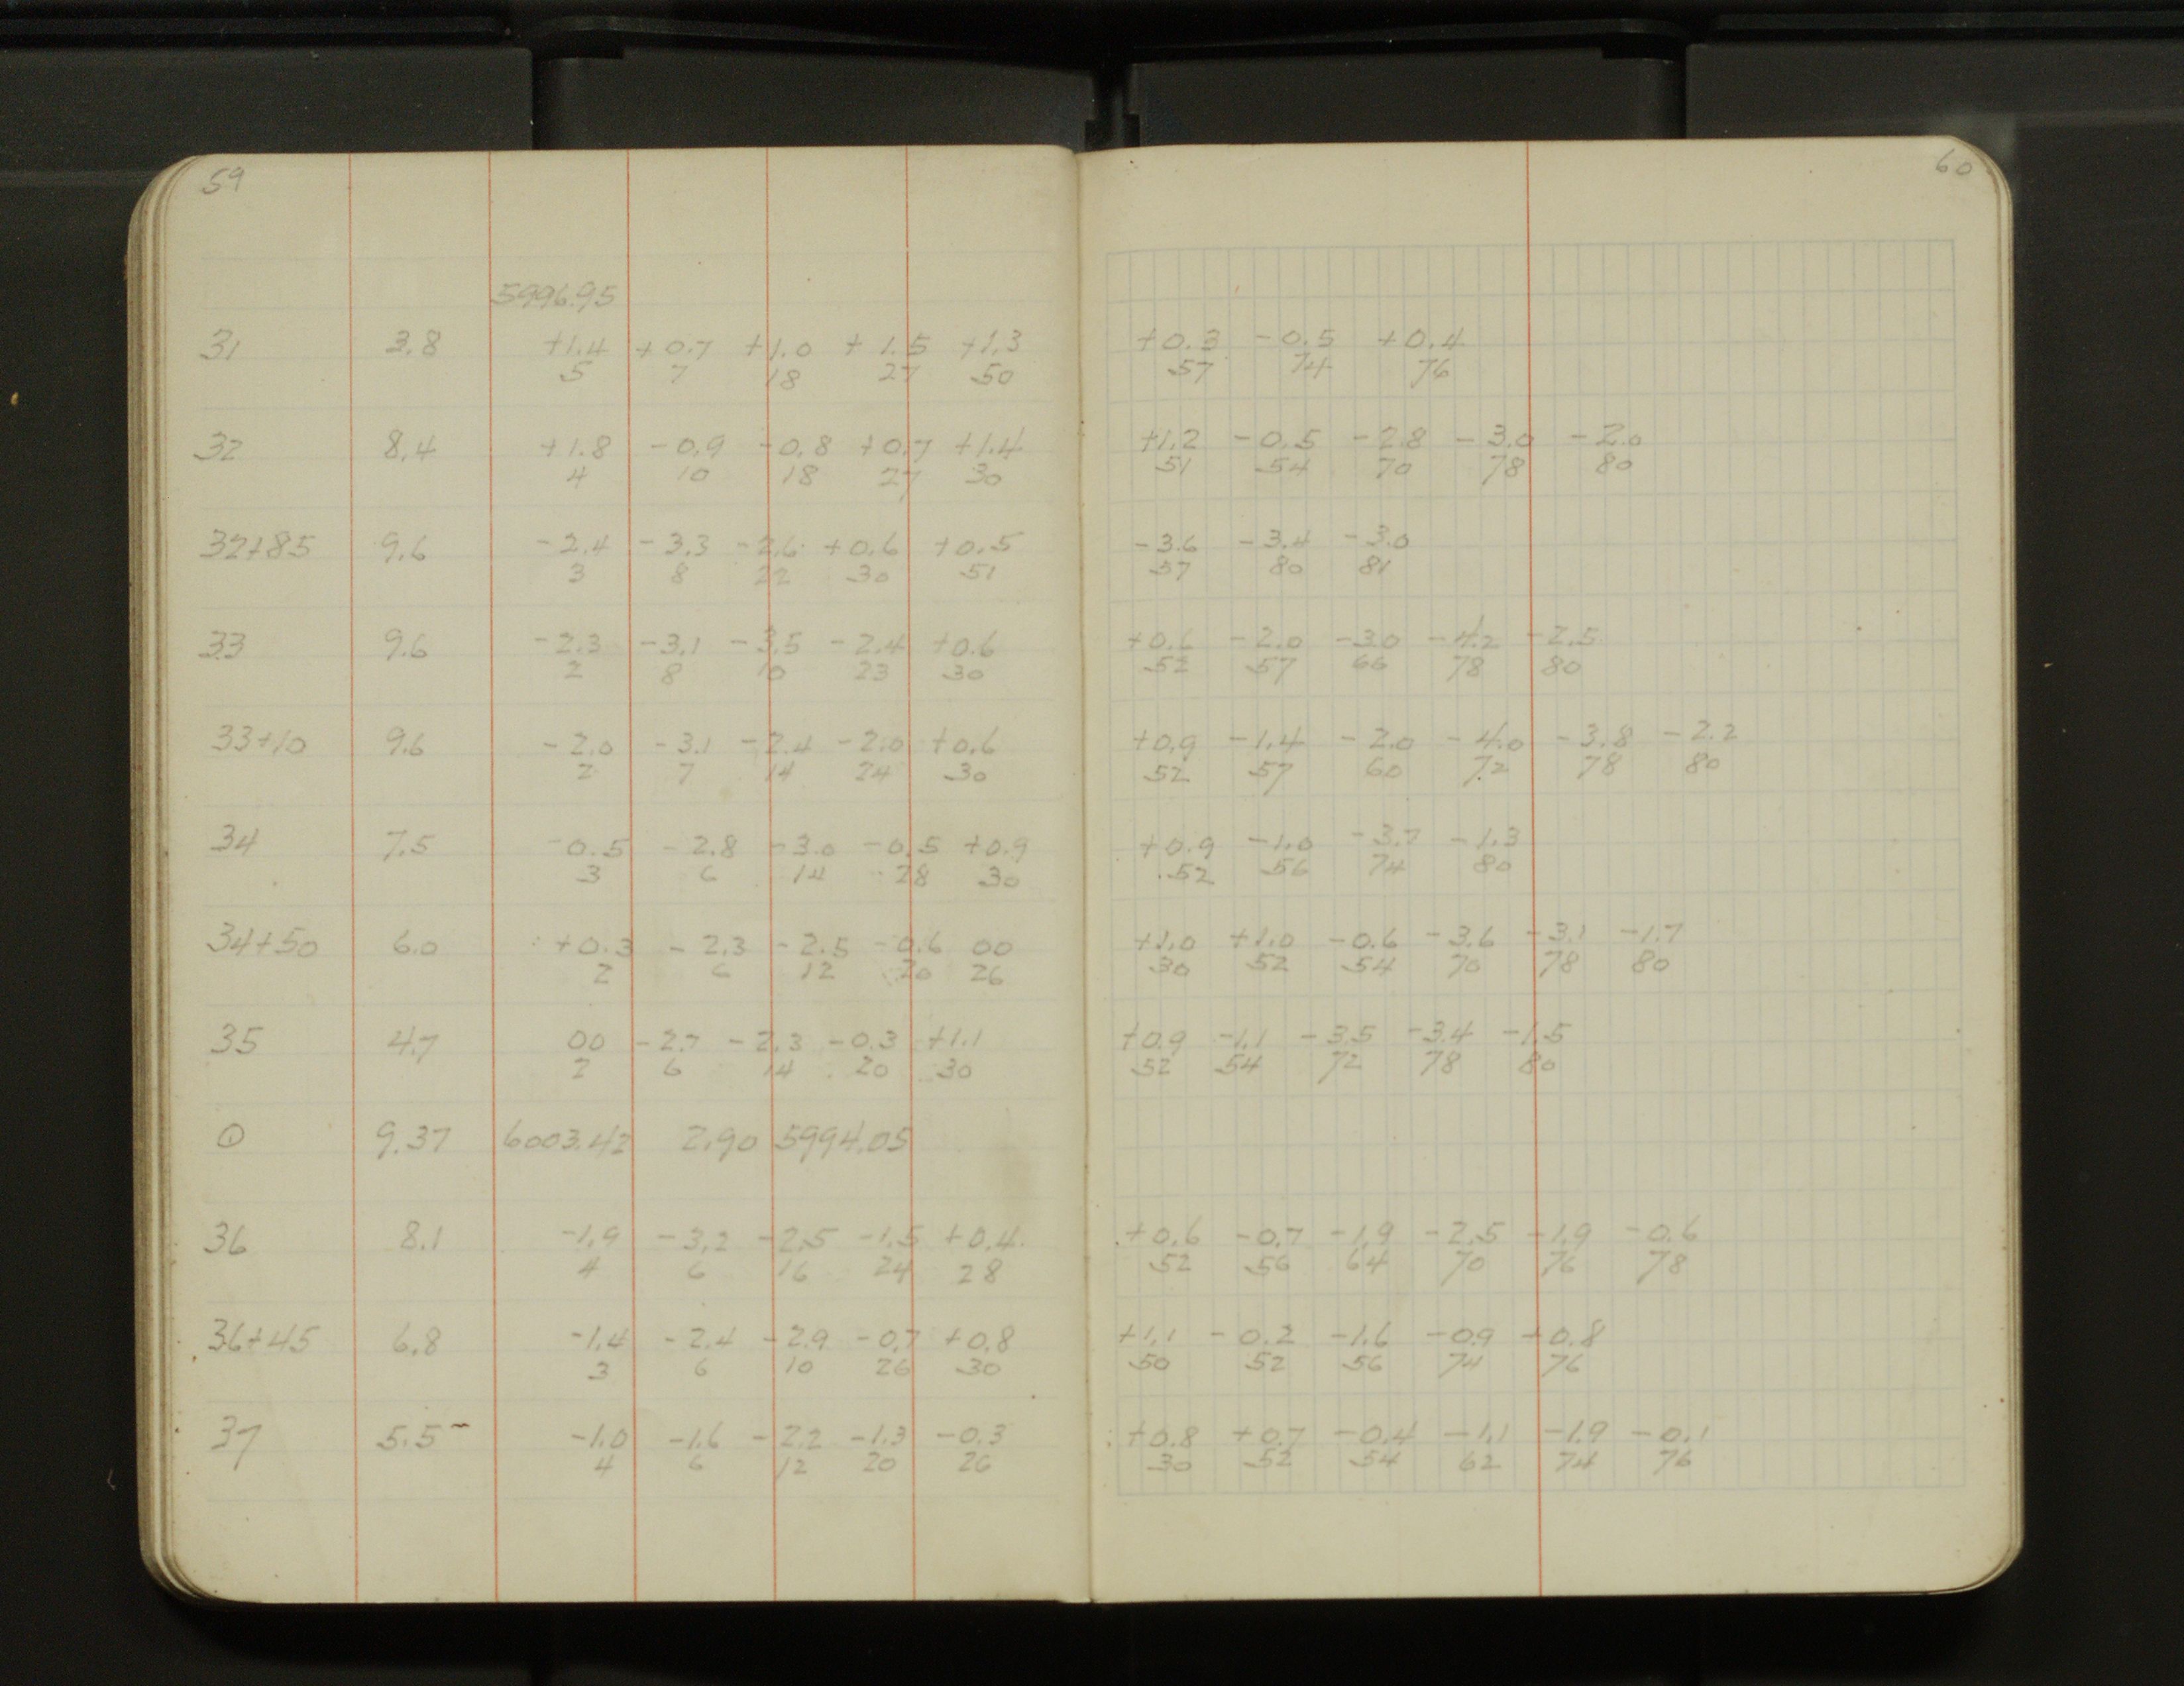 59
5996.95
31 3.8 +1.4 +0.7 +1.0 +1.5 +1.3
5 7 18 27 50
32 8.4 +1.8 -0.9 -0.8 +0.7 +1.4
4 10 18 27 30
32+85 9.6 -2.4 -3.3 -2.6 +0.6 +0.5
3 8 22 30 51
33 9.6 -2.3 -3.1 -3.5 -2.4 +0.6
2 8 10 23 30
33+10 9.6 -2.0 -3.1 -2.4 -2.0 +0.6
2 7 14 24 30
34 7.5 -0.5 -2.8 -3.0 -0.5 +0.9
3 6 14 28 30
34+50 6.0 +0.3 -2.3 -2.5 -0.6 00
2 6 12 20 26
35 4.7 00 -2.7 -2.3 -0.3 +1.1
2 6 14 20 30
9.37 6003.42 2.90 5994.05
36 8.1 -1.9 -3.2 -2.5 -1.5 +0.4
4 6 16 24 28
36+45 6.8 -1.4 -2.4 -2.9 -0.7 +0.8
3 6 10 26 30
37 5.5 -1.0 -1.6 -2.2 -1.3 -0.3
4 6 12 20 26
60
+0.3 -0.5 +0.4
57 74 76
+1.2 -0.5 -2.8 -3.0 -2.0
51 54 70 78 80
-3.6 -3.4 -3.0
57 80 81
+0.6 -2.0 -3.0 -4.2 -2.5
52 57 66 78 80
+0.9 -1.4 -2.0 -4.0 -3.8 -2.2
52 57 60 72 78 80
+0.9 -1.0 -3.7 -1.3
52 56 74 80
+1.0 +1.0 -0.6 -3.6 -3.1 -1.7
30 52 54 70 78 80
+0.9 -1.1 -3.5 -3.4 -1.5
52 54 72 78 80
+0.6 -0.7 -1.9 -2.5 -1.9 -0.6
52 56 64 70 76 78
+1.1 -0.2 -1.6 -0.9 +0.8
50 52 56 74 76
+0.8 +0.7 -0.4 -1.1 -1.9 -0.1
30 52 54 62 74 76